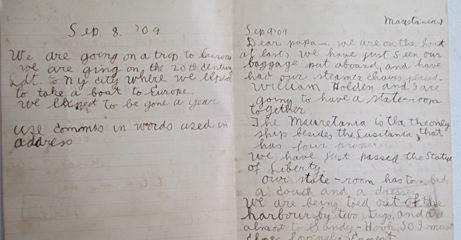 Sep 8. '09
We are going on a trip to
we are going on the 20th century
Ltd. to N.y. city where we
to take a boat to Europe.
We to be gone a year
use commas in words used in
address
Mauretania
Sep 9 '09
Dear papa - we are on the boat
at last, we have just seen our
baggage put aboard, and have
had our steamer chairs
William Holden and I are
going to have a state-room
together
The Mauretania is the only
ship besides the Lusitania, that
has four
We have just passed the Statue
of Liberty.
our state-room has two
a couch and a
We are being toed out of the
harbour by two tugs, and are
almost to Sandy-Hook, so I must